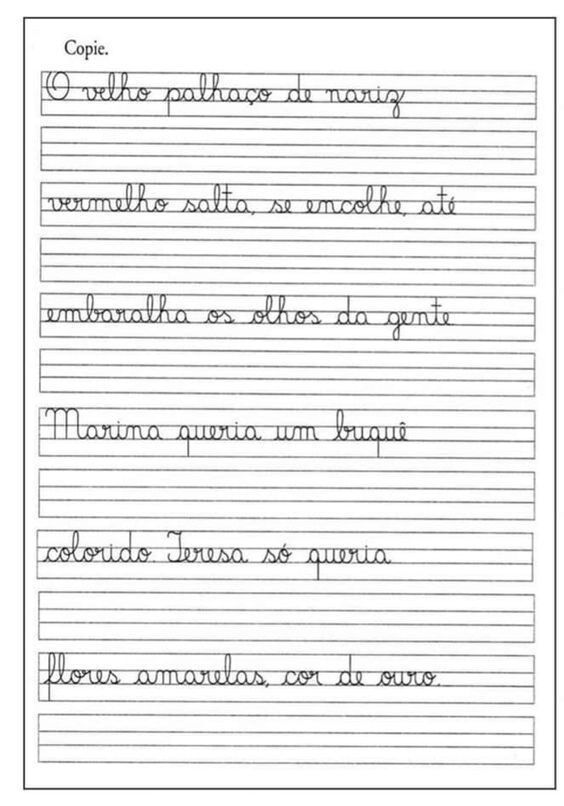 Copie.
O velho palhaço de nariz
vermelho salta, se encolhe, até
embaralha os olhos da gente.
Marina queria um buquê
colorido. Teresa só queria
flores amarelas, cor de ouro.